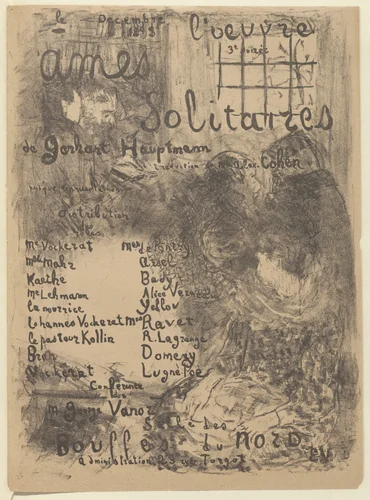 le Decembre l'oeuvre
1893 3e soirée
ames
Solitaires
de Gerhart Hauptmann
traduction de Mr Alex. Cohen
unique représentation
distribution
Me Vockerat
Mlle Mahr Ariel
Kaethe Bady
Me Lehmann Alice
la nourrice Yellov
Johannes Vockerat Mrs Ravet
le pasteur Kollin R. Lagrange
Bran Domeny
Vockerat Lugné Poe
Conférence
de
M. Vanor
Salle des
Bouffes du NORD
administration 23 rue Turgot
EV